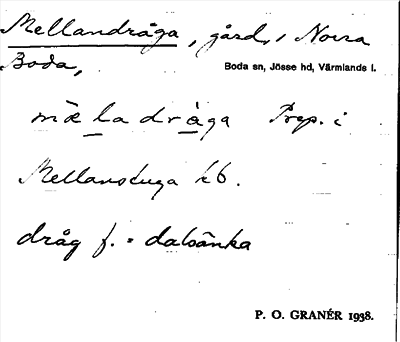 Mellandråga, gård, i Norra
Boda,
Boda sn, Jösse hd, Värmlands l.
mæladråga Prep. i
Mellanstuga kb.
dråg f. = dalsänka
P. O. GRANÉR 1938.